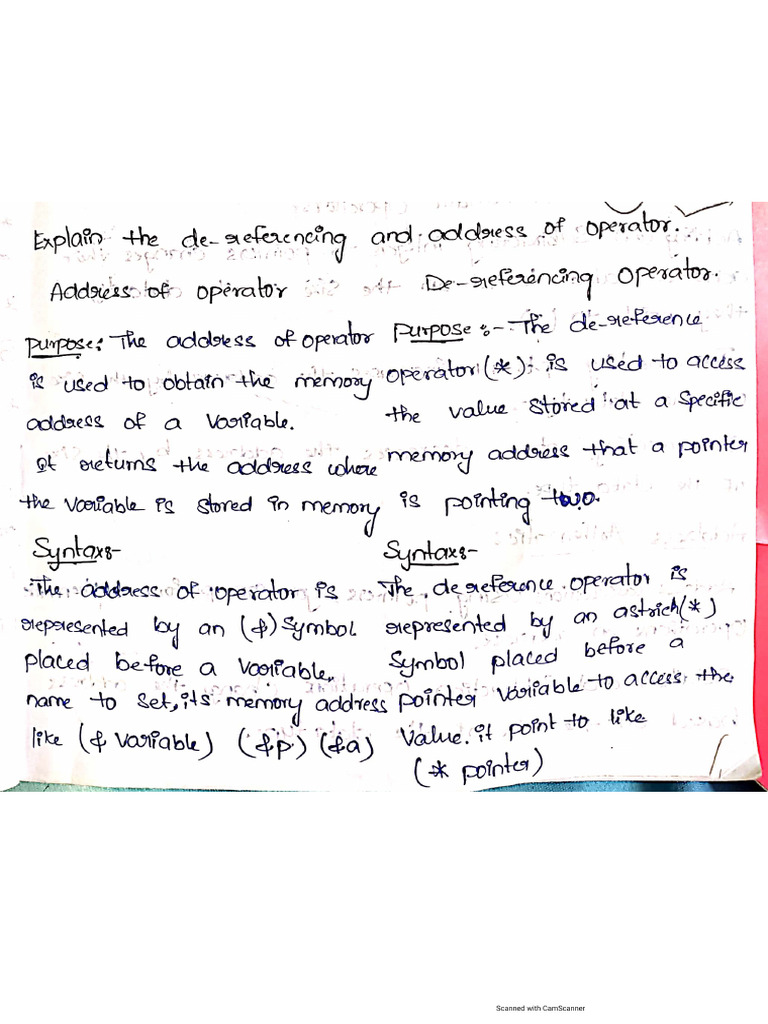 Explain the de-referencing and address of operator.
Address of operator
De-referencing operator.
Purpose: The address of operator
is used to obtain the memory
address of a variable.
It returns the address where
the variable is stored in memory
Syntax:-
The address of operator is
represented by an (&) symbol
placed before a variable.
name to set, its memory address
like (& variable) (&p) (&a)
Purpose :- The de-reference
operator (*): is used to access
the value stored at a specific
memory address that a pointer
is pointing two.
Syntax:-
The dereference operator is
represented by an astrich(*)
Symbol placed before a
pointer variable to access the
value. it point to like
(* pointer)
Scanned with CamScanner